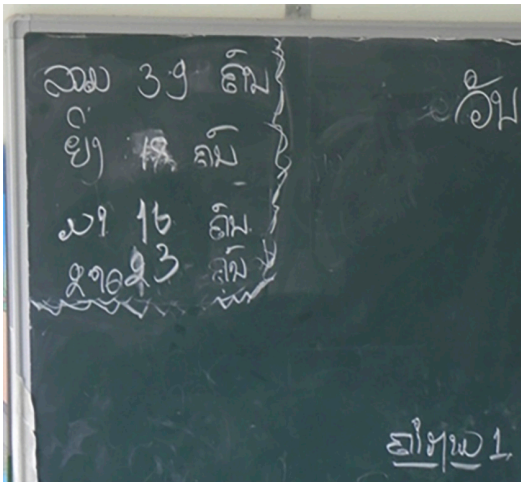 ລວມ 39 ຄົນ
ຍິງ 18 ຄົນ
ມາ 16 ຄົນ
ຂາດ 23 ຄົນ
ວັນ
1